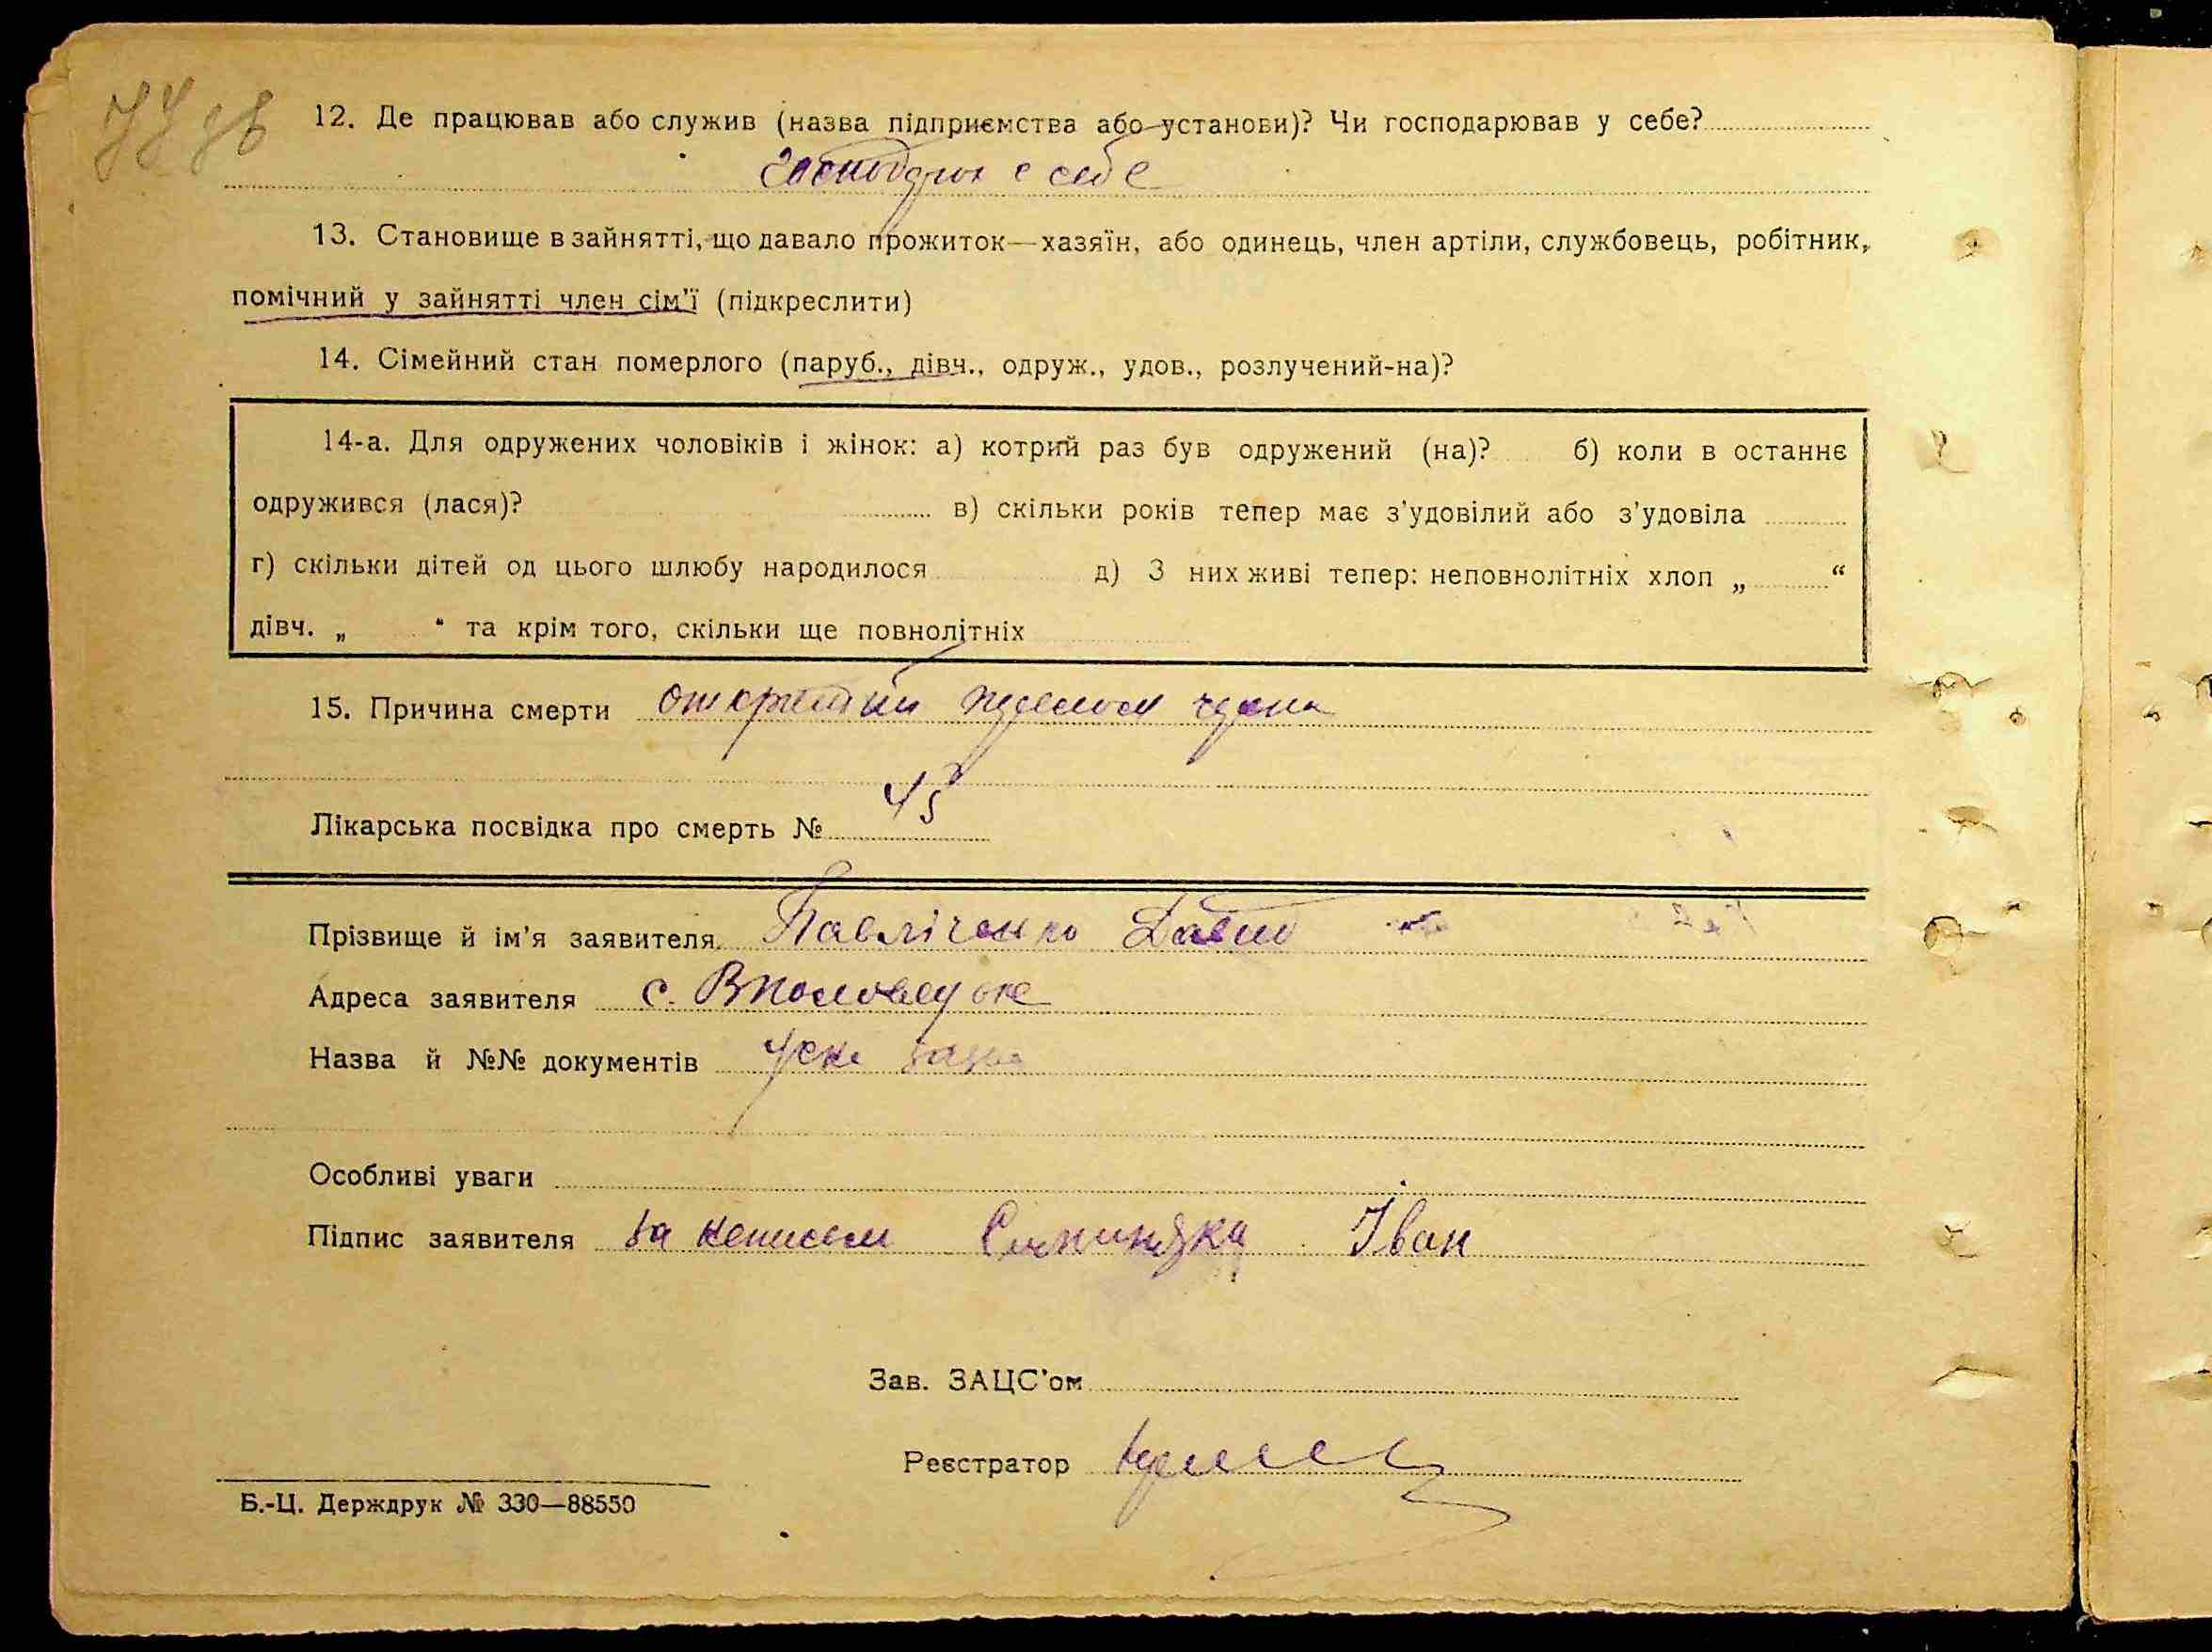 12. Де працював або служив (назва підприємства або установи)? Чи господарював у себе?
13. Становище в зайнятті, що давало прожиток—хазяїн, або одинець, член артіли, службовець, робітник,
помічний у зайнятті член сім'ї (підкреслити)
14. Сімейний стан померлого (паруб., дівч., одруж., удов., розлучений-на)?
14-а. Для одружених чоловіків і жінок: а) котрий раз був одружений (на)? б) коли в останнє
одружився (лася)? в) скільки років тепер має з'удовілий або з'удовіла
г) скільки дітей од цього шлюбу народилося д) З них живі тепер: неповнолітніх хлоп „ “
дівч. „ “ та крім того, скільки ще повнолітніх
15. Причина смерти
Лікарська посвідка про смерть № 45
Прізвище й ім'я заявителя Павліченко Давид
Адреса заявителя с. Вполовецьке
Назва й №№ документів
Особливі уваги
Підпис заявителя за неписем Іван
Зав. ЗАЦС'ом
Реєстратор
Б.-Ц. Держдрук № 330—88550